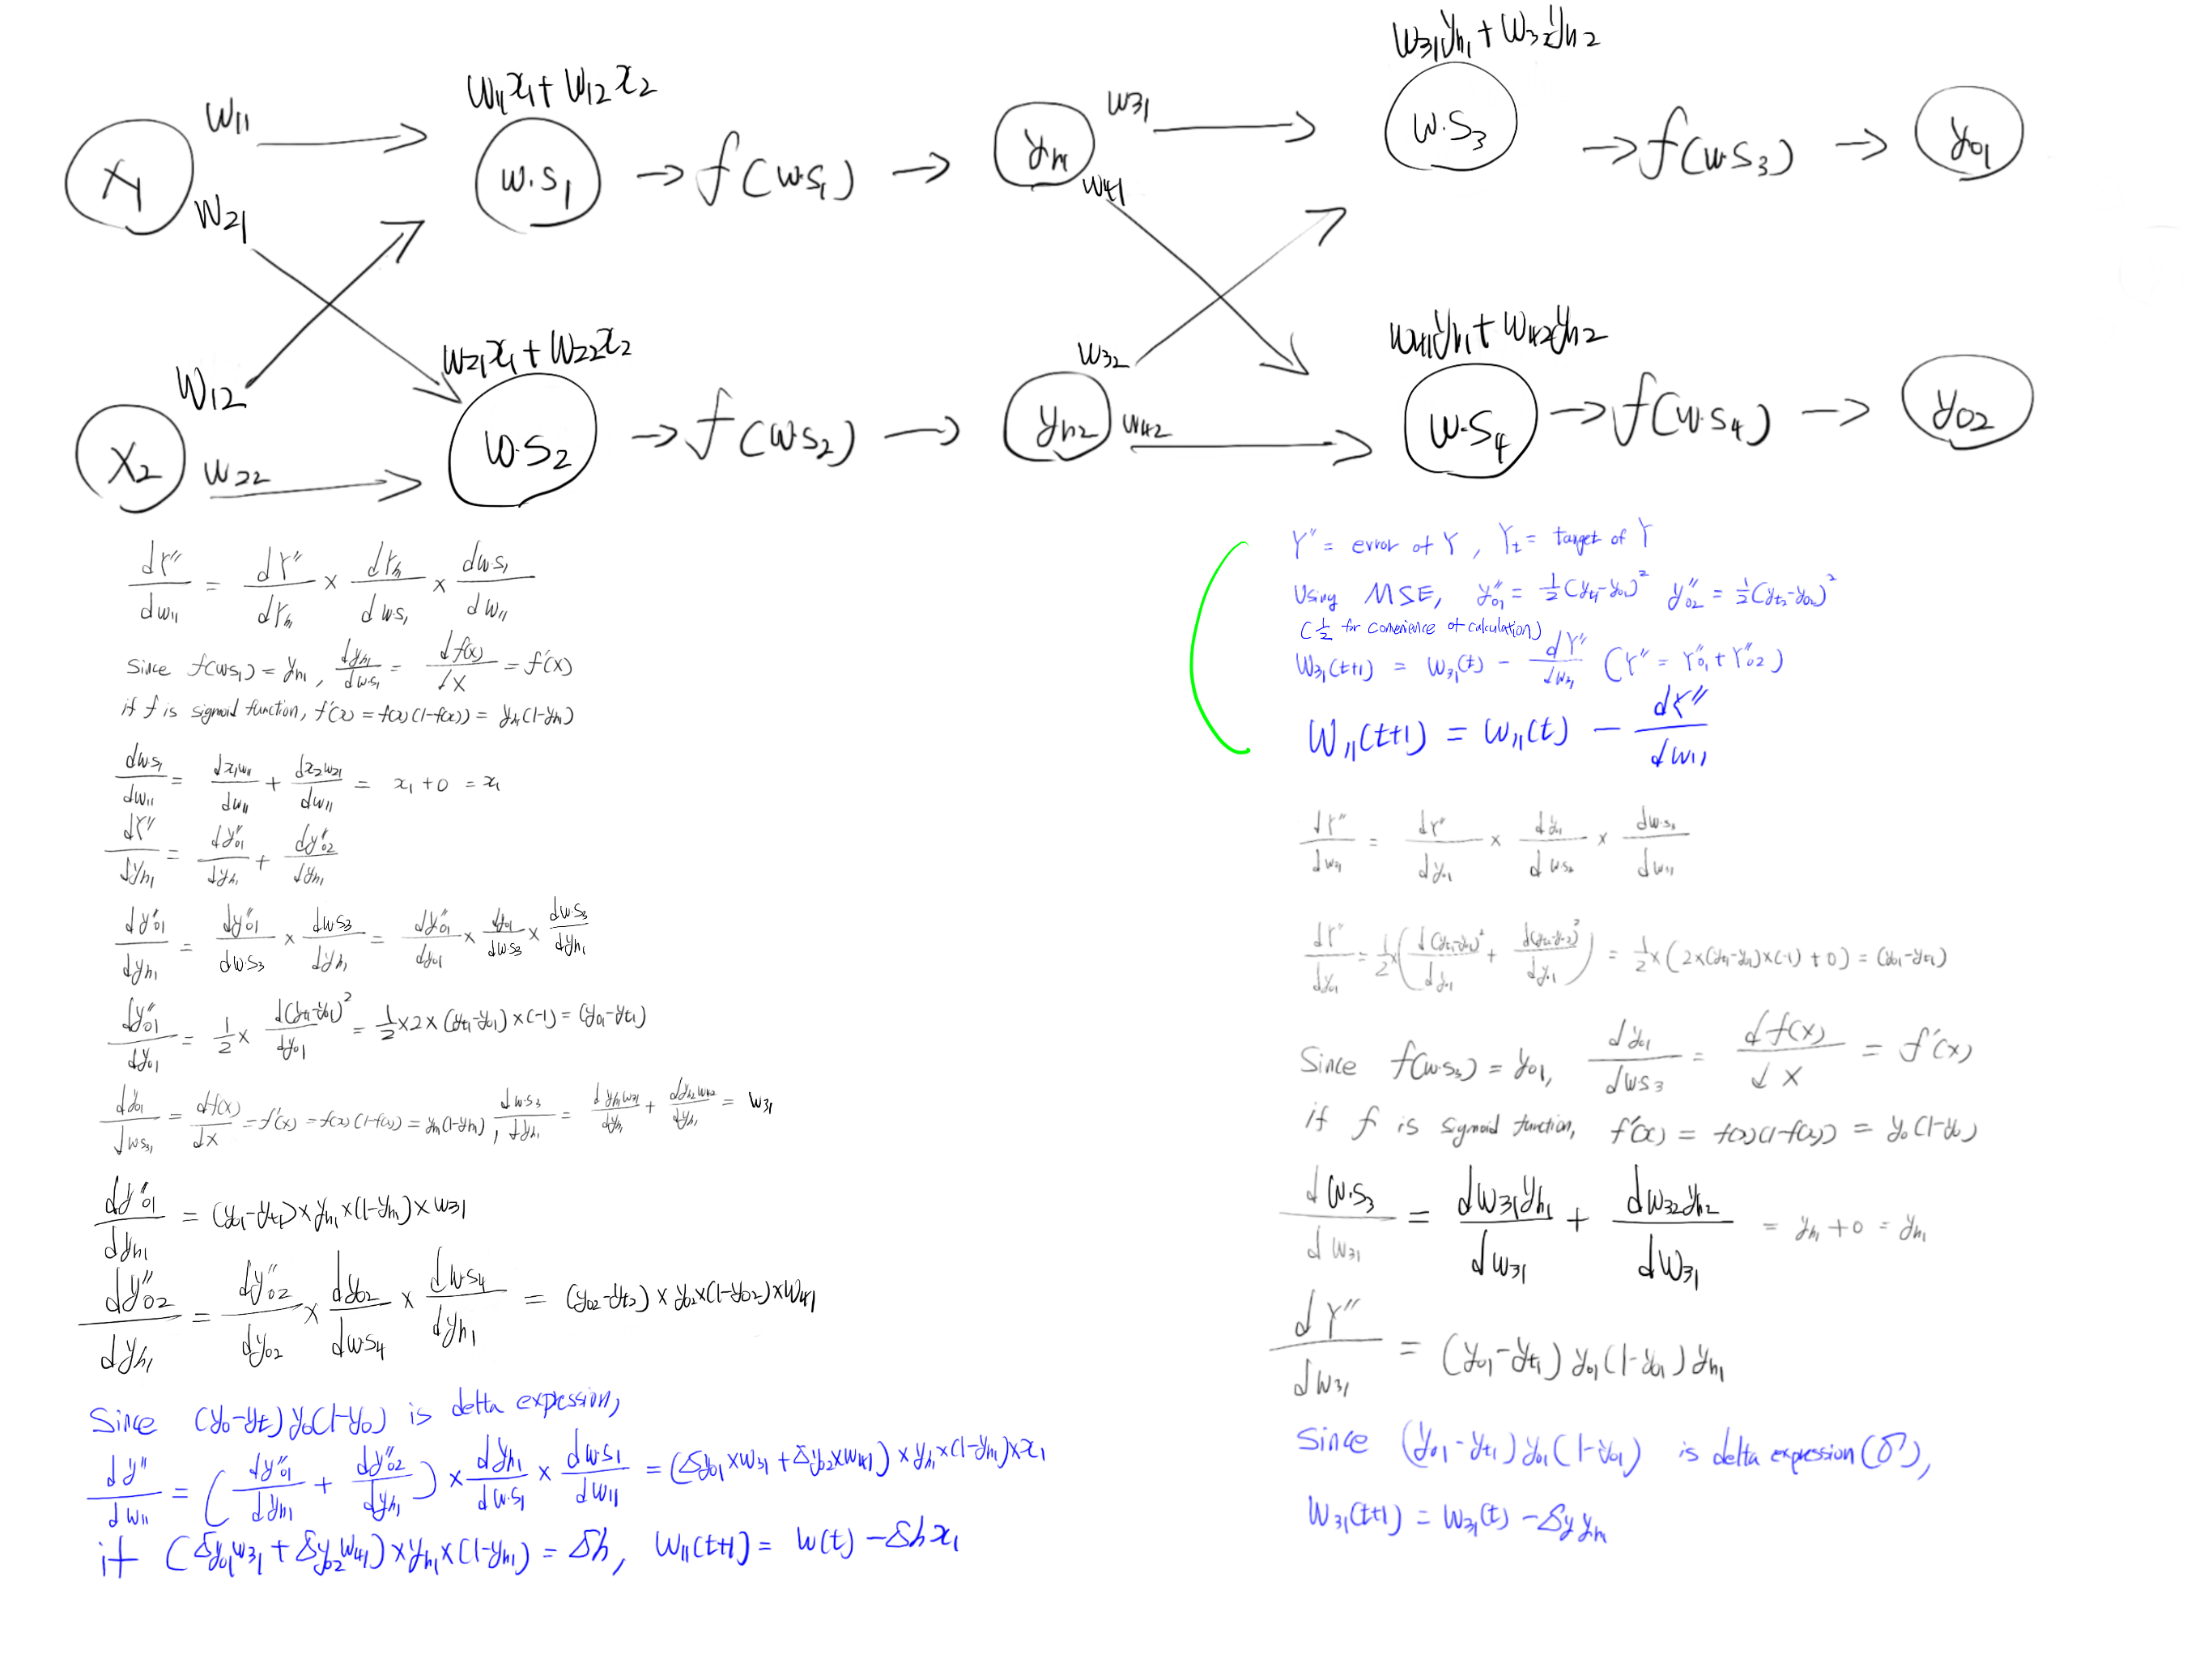 w₃₁yₕ₁ + w₃₂yₕ₂
w₁₁x₁ + w₁₂x₂
w₁₁ w₃₁
x₁ w.s₁ → f(w.s₁) → yₕ₁ w.s₃ → f(w.s₃) → y₀₁
w₂₁ w₄₁
w₂₁x₁ + w₂₂x₂ w₄₁yₕ₁ + w₄₂yₕ₂
w₁₂ w₃₂
x₂ w.s₂ → f(w.s₂) → yₕ₂ w.s₄ → f(w.s₄) → y₀₂
w₂₂ w₄₂
dY″/dw₁₁ = dY″/dYₕ₁ × dYₕ₁/dw.s₁ × dw.s₁/dw₁₁
Since f(ws₁) = yₕ₁, dyₕ₁/dw.s₁ = df(x)/dx = f′(x)
if f is sigmoid function, f′(x) = f(x)(1-f(x)) = yₕ₁(1-yₕ₁)
dws₁/dw₁₁ = dx₁w₁₁/dw₁₁ + dx₂w₂₁/dw₁₁ = x₁ + 0 = x₁
dY″/dyₕ₁ = dy″₀₁/dyₕ₁ + dy″₀₂/dyₕ₁
dy″₀₁/dyₕ₁ = dy″₀₁/dw.s₃ × dw.s₃/dyₕ₁ = dy″₀₁/dy₀₁ × dy₀₁/dw.s₃ × dw.s₃/dyₕ₁
dy″₀₁/dy₀₁ = 1/2 × d(yₜ₁-y₀₁)²/dy₀₁ = 1/2 × 2 × (yₜ₁-y₀₁) × (-1) = (y₀₁-yₜ₁)
dy₀₁/dws₃₁ = df(x)/dx = f′(x) = f(x)(1-f(x)) = yₕ₁(1-yₕ₁), dw.s₃/dyₕ₁ = dyₕ₁w₃₁/dyₕ₁ + dyₕ₂w₄₂/dyₕ₁ = w₃₁
dy″₀₁/dyₕ₁ = (y₀₁-yₜ₁) × yₕ₁ × (1-yₕ₁) × w₃₁
dy″₀₂/dyₕ₁ = dy″₀₂/dy₀₂ × dy₀₂/dws₄ × dw.s₄/dyₕ₁ = (y₀₂-yₜ₂) × y₀₂ × (1-y₀₂) × w₄₁
Since (y₀-yₜ)y₀(1-y₀) is delta expression,
dy″/dw₁₁ = (dy″₀₁/dyₕ₁ + dy″₀₂/dyₕ₁) × dyₕ₁/dw.s₁ × dws₁/dw₁₁ = (δy₀₁ × w₃₁ + δy₀₂ × w₄₁) × yₕ₁ × (1-yₕ₁) × x₁
if (δy₀₁w₃₁ + δy₀₂w₄₁) × yₕ₁ × (1-yₕ₁) = δh, w₁₁(t+1) = w(t) - δhx₁
Y″ = error of Y, Yₜ = target of Y
Using MSE, y″₀₁ = ½(yₜ₁-y₀₁)² y″₀₂ = ½(yₜ₂-y₀₂)²
(½ for convenience of calculation)
w₃₁(t+1) = w₃₁(t) - dY″/dw₃₁ (Y″ = Y″₀₁ + Y″₀₂)
w₁₁(t+1) = w₁₁(t) - dY″/dw₁₁
dY″/dw₃₁ = dY″/dy₀₁ × dy₀₁/dws₃ × dw.s₃/dw₁₁
dY″/dy₀₁ = 1/2 × (d(yₜ₁-y₀₁)²/dy₀₁ + d(yₜ₂-y₀₂)²/dy₀₁) = 1/2 × (2 × (yₜ₁-y₀₁) × (-1) + 0) = (y₀₁-yₜ₁)
Since f(w.s₃) = y₀₁, dy₀₁/dws₃ = df(x)/dx = f′(x)
if f is sigmoid function, f′(x) = f(x)(1-f(x)) = y₀(1-y₀)
dw.s₃/dw₃₁ = dw₃₁yₕ₁/dw₃₁ + dw₃₂yₕ₂/dw₃₁ = yₕ₁ + 0 = yₕ₁
dY″/dw₃₁ = (y₀₁-yₜ₁)y₀₁(1-y₀₁)yₕ₁
Since (y₀₁-yₜ₁)y₀₁(1-y₀₁) is delta expression(δ),
w₃₁(t+1) = w₃₁(t) - δyyₕ₁